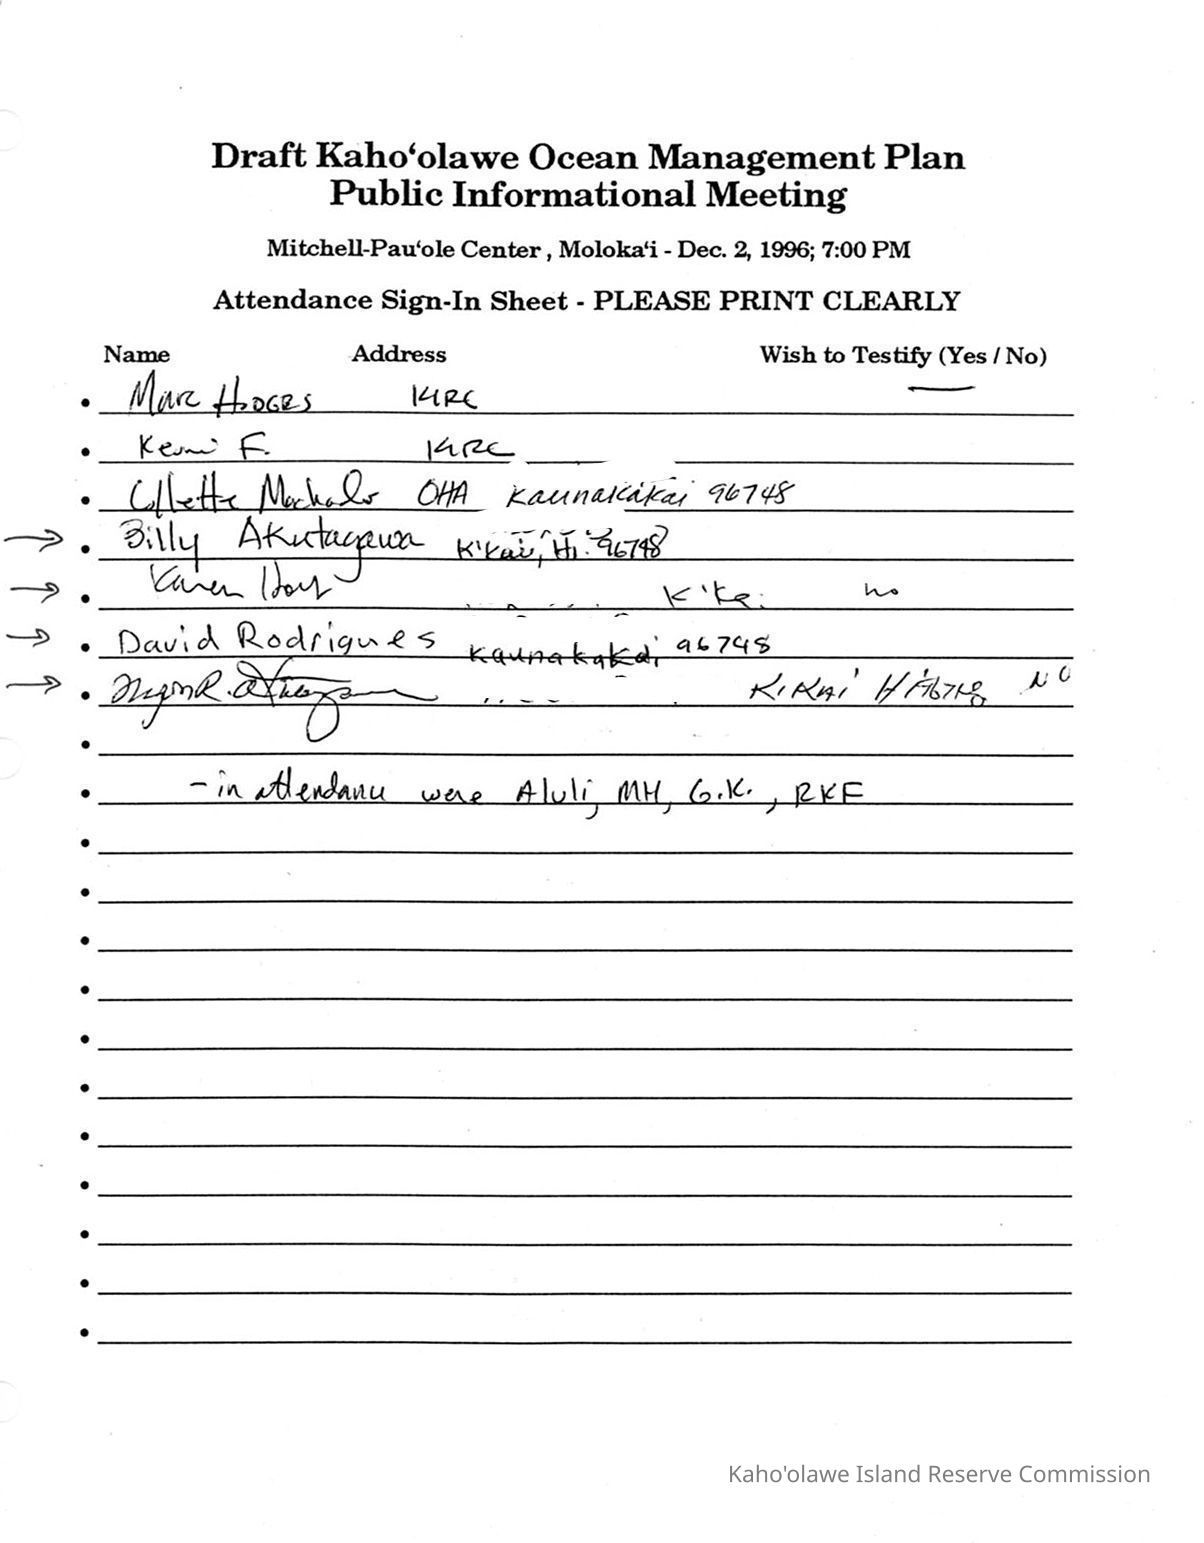 Draft Kaho‘olawe Ocean Management Plan
Public Informational Meeting
Mitchell-Pau‘ole Center , Moloka‘i - Dec. 2, 1996; 7:00 PM
Attendance Sign-In Sheet - PLEASE PRINT CLEARLY
Name Address Wish to Testify (Yes / No)
Marc Hodges KIRC
F. KIRC
Collette Machado OHA Kaunakakai 96748
Billy Akutagawa K'Kai, Hi. 96748
Karen K'Kai no
David Rodrigues Kaunakakai 96748
KiKai HI 96748 NO
- in attendance were Aluli, MH, G.K., RKF
Kaho'olawe Island Reserve Commission